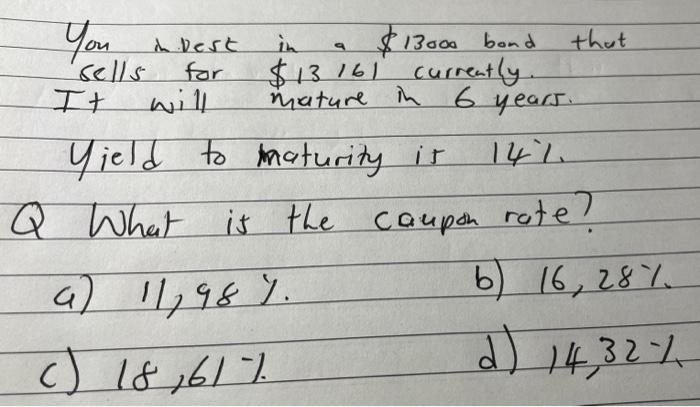 You invest in a $13000 bond that
sells for $13 161 currently.
It will mature in 6 years.
Yield to maturity is 14%.
Q What is the caupon rate?
a) 11,98 %.
b) 16,28%.
c) 18,61%
d) 14,32%